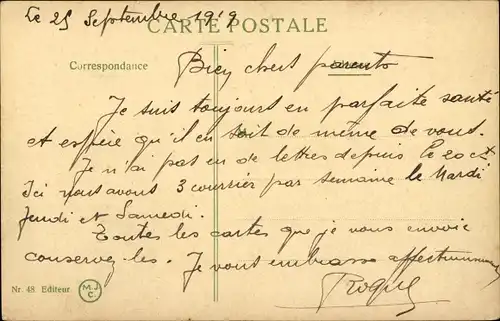 Le 25 Septembre 1919
CARTE POSTALE
Correspondance
Bien chers parents
Je suis toujours en parfaite santé
et espère qu'il en soit de même de vous.
Je n'ai pas eu de lettres depuis le 20 ct
Ici nous avons 3 courrier par semaine le Mardi
Jeudi et Samedi.
Toutes les cartes que je vous envoie
conservez-les. Je vous embrasse affectueusement
Roque
Nr. 48 Editeur
M.J.
C.